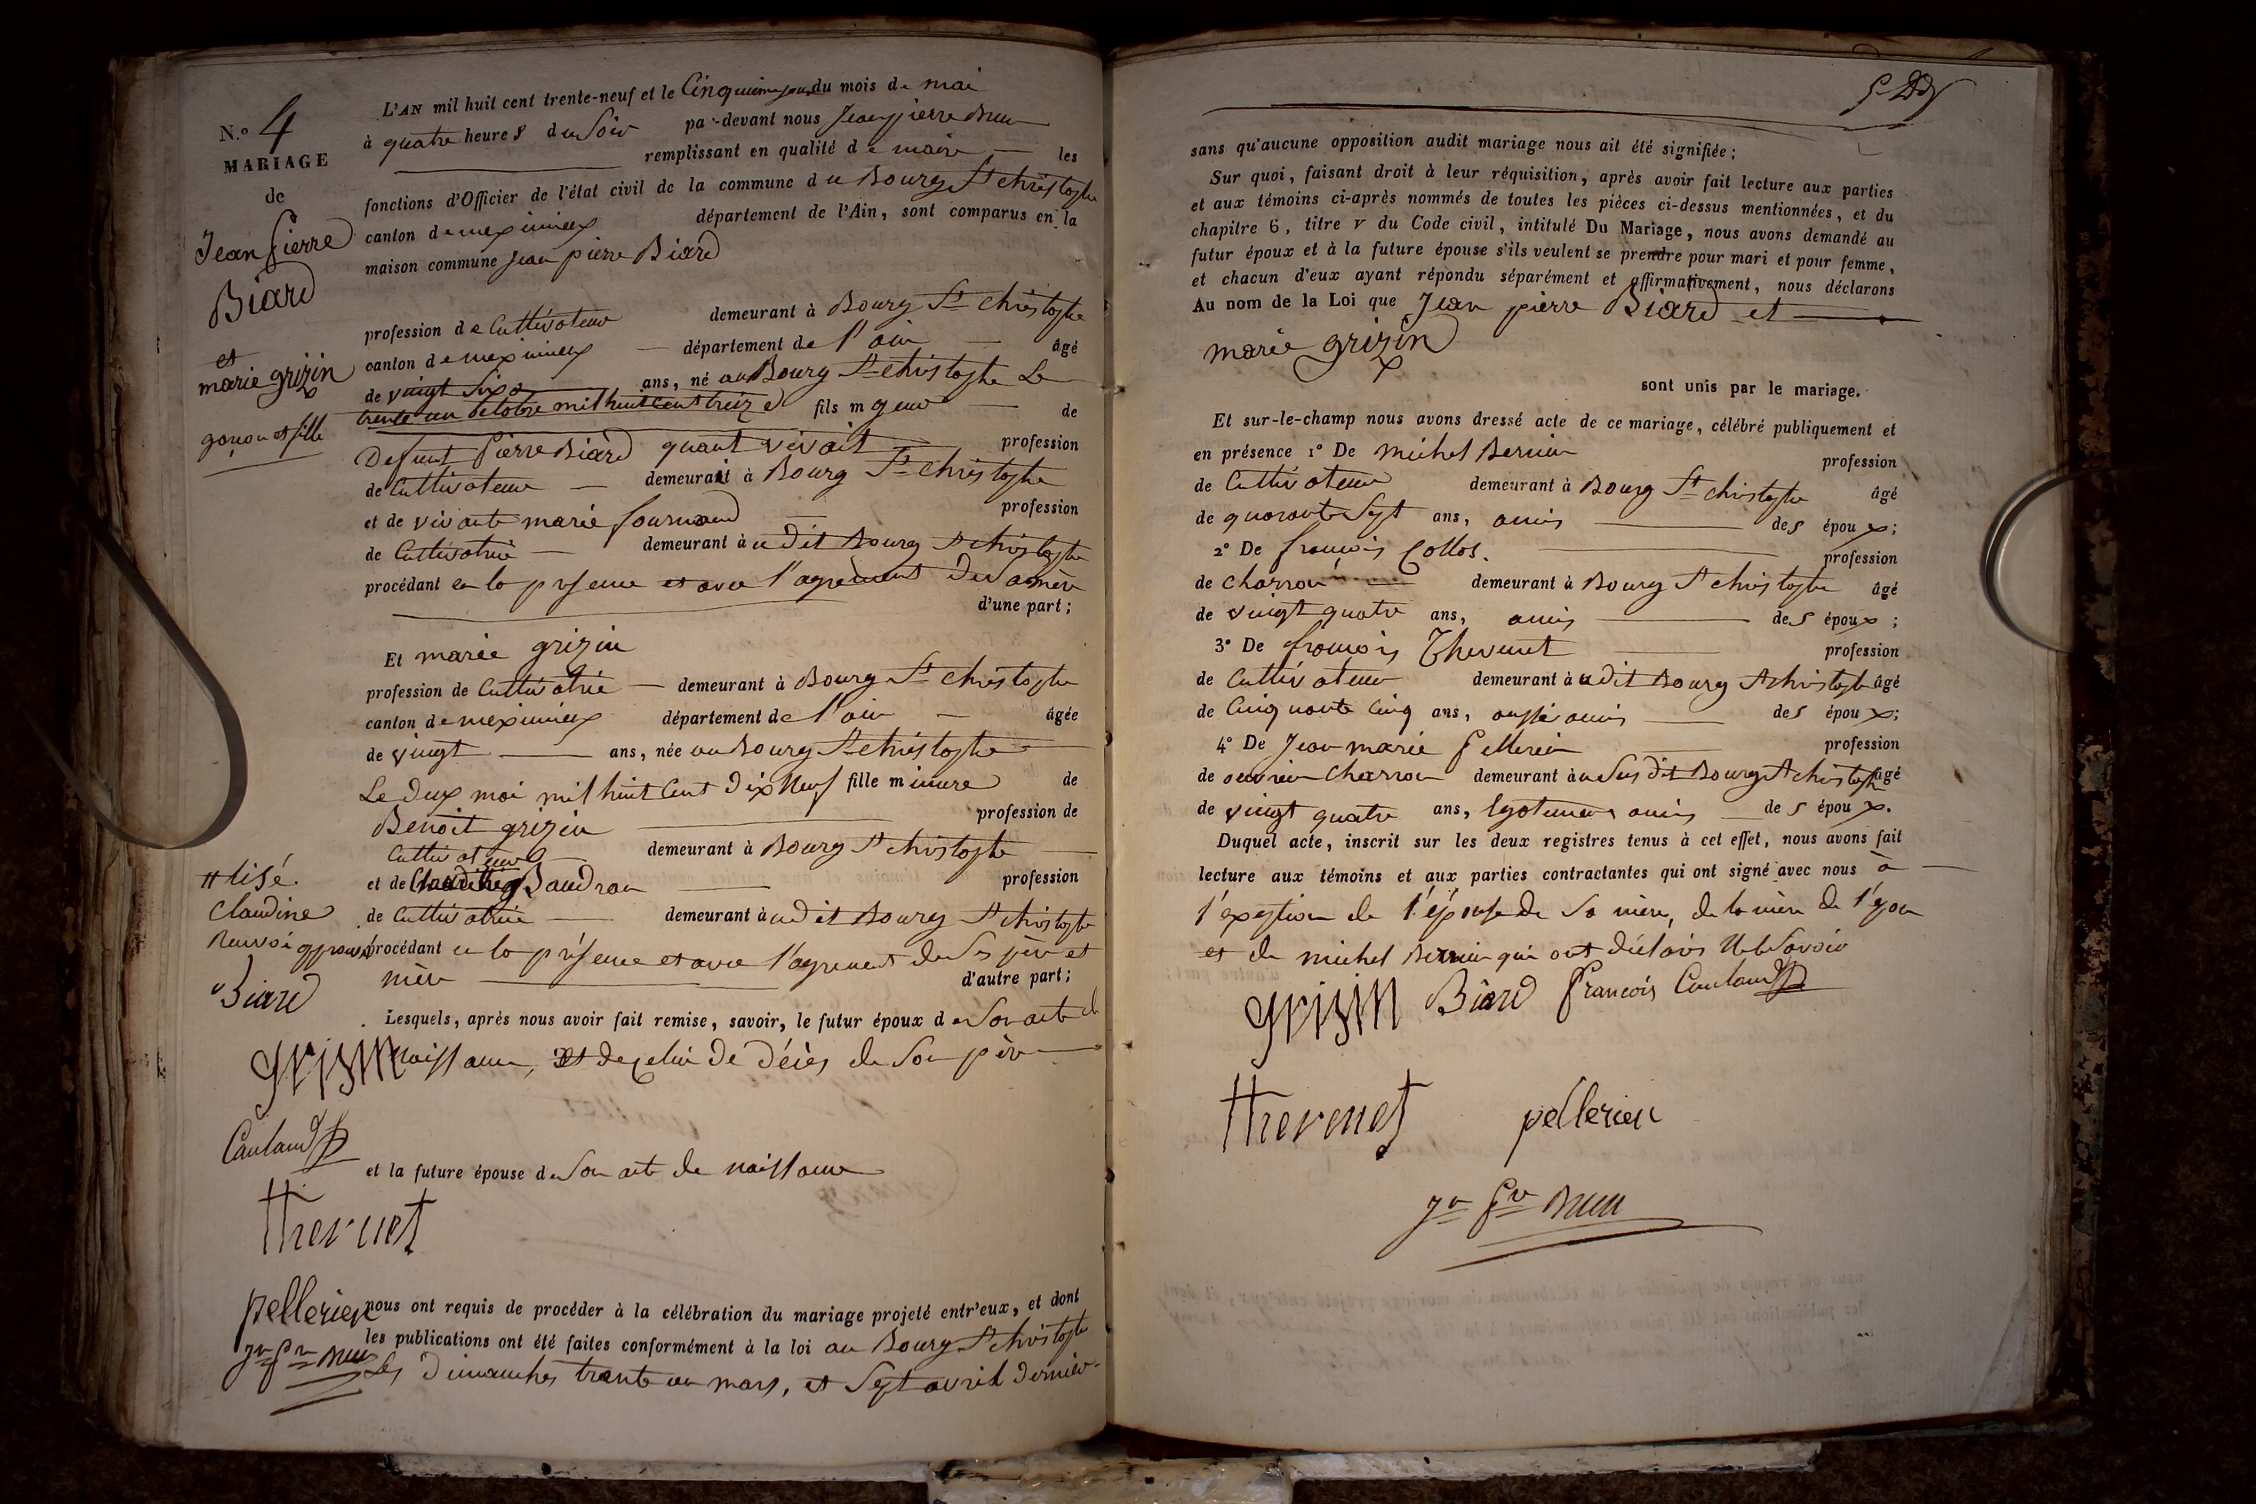 N.º 4
MARIAGE
de
Jean Pierre
Biard
et
marie grizin
garçon et fille
L'AN mil huit cent trente-neuf et le Cinquieme jour du mois de mai
à quatre heures du Soir par-devant nous Jean pierre Brun
remplissant en qualité de maire les
fonctions d'Officier de l'état civil de la commune du Bourg St christophe
canton de meximieux département de l'Ain, sont comparus en la
maison commune Jean pierre Biard
profession de Cultivateur demeurant à Bourg St christophe
canton de meximieux département de l'ain âgé
de vingt Six ans, né au Bourg St christophe Le
trente un octobre mil huit cent treize fils mageur de
Defunt Pierre Biard quant vivait profession
de Cultivateur demeurait à Bourg St christophe
et de vivante marie fournand profession
de Cultivatrice demeurant à udit Bourg St christophe
procédant en la présence et avec l'agrèment de sa mère
d'une part;
Et marie grizin
profession de Cultivatrice demeurant à Bourg St christophe
canton de meximieux département de l'ain âgée
de vingt ans, née au Bourg St christophe
Le deux mai mil huit Cent dix Neuf fille mineure de
Benoit grizin profession de
Cultivateur demeurant à Bourg St christophe
et de Baudran profession
de Cultivatrice demeurant à udit Bourg St christophe
procédant en la présence et avec l'agrement de Ses père et
mère d'autre part;
# lisé
Claudine
Renvoi approuvé
Biard
Lesquels, après nous avoir fait remise, savoir, le futur époux de Son acte de
naissance, et de celui de décès de Son père
grizin
Cautaud
et la future épouse de Son acte de naissance
thevenet
pellerien
nous ont requis de procéder à la célébration du mariage projeté entr'eux, et dont
les publications ont été faites conformément à la loi au Bourg St christophe
Jn Pre Brun
Les Dimanches trente un mars, et Sept avril dernier
sans qu'aucune opposition audit mariage nous ait été signifiée;
Sur quoi, faisant droit à leur réquisition, après avoir fait lecture aux parties
et aux témoins ci-après nommés de toutes les pièces ci-dessus mentionnées, et du
chapitre 6, titre v du Code civil, intitulé Du Mariage, nous avons demandé au
futur époux et à la future épouse s'ils veulent se prendre pour mari et pour femme,
et chacun d'eux ayant répondu séparément et affirmativement, nous déclarons
Au nom de la Loi que Jean pierre Biard et
marie grizin
sont unis par le mariage.
Et sur-le-champ nous avons dressé acte de ce mariage, célébré publiquement et
en présence 1º De michel Bernin profession
de Cultivateur demeurant à Bourg St christophe âgé
de quarante Sept ans, amis des époux;
2º De françois Collos. profession
de charron demeurant à Bourg St christophe âgé
de vingt quatre ans, amis des époux;
3º De françois Thevenet profession
de Cultivateur demeurant à udit Bourg St christophe âgé
de Cinquante Cinq ans, aussi amis des époux;
4º De Jean marie Pellerin profession
de ouvrier Charron demeurant à u Sus dit Bourg St christophe âgé
de vingt quatre ans, amis des époux.
Duquel acte, inscrit sur les deux registres tenus à cet effet, nous avons fait
lecture aux témoins et aux parties contractantes qui ont signé avec nous à
l'exeption de l'épouse de Sa mère, de la mère de l'époux
et de michel Bernin qui ont déclaré Ne le Savoir
grizin Biard francois Cautaud
thevenet pellerien
Jn Pre Brun